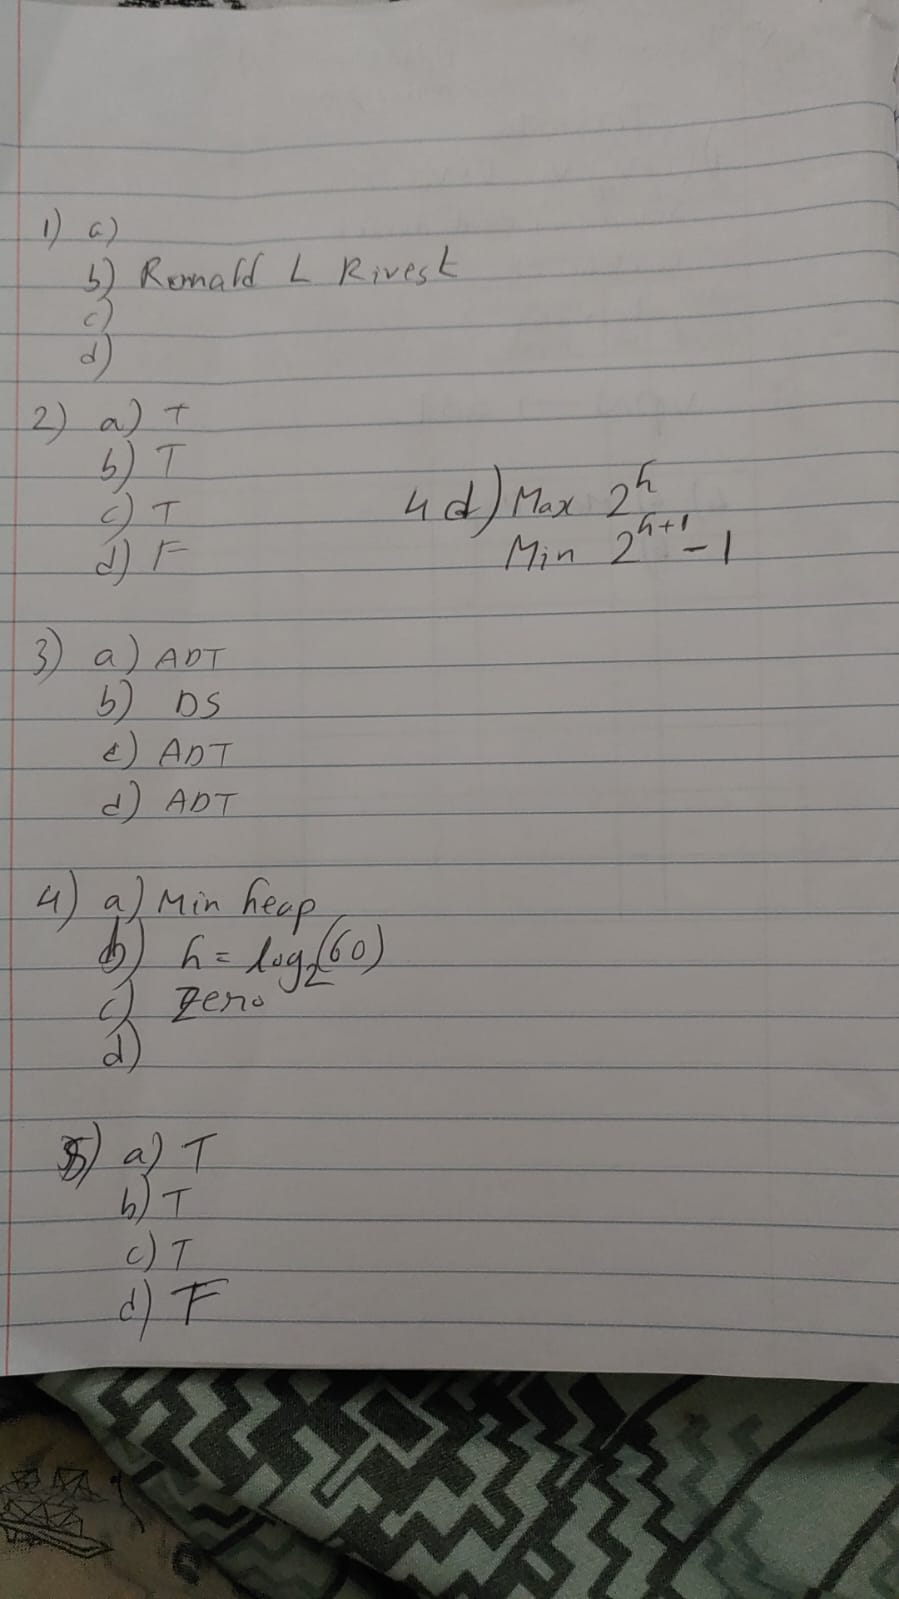 1) a)
b) Ronald L Rivest
c)
d)
2) a) T
b) T
c) T
d) F
4 d) Max 2^h
Min 2^h+1 - 1
3) a) ADT
b) DS
c) ADT
d) ADT
4) a) Min heap
b) h = log₂(60)
c) Zero
d)
5) a) T
b) T
c) T
d) F